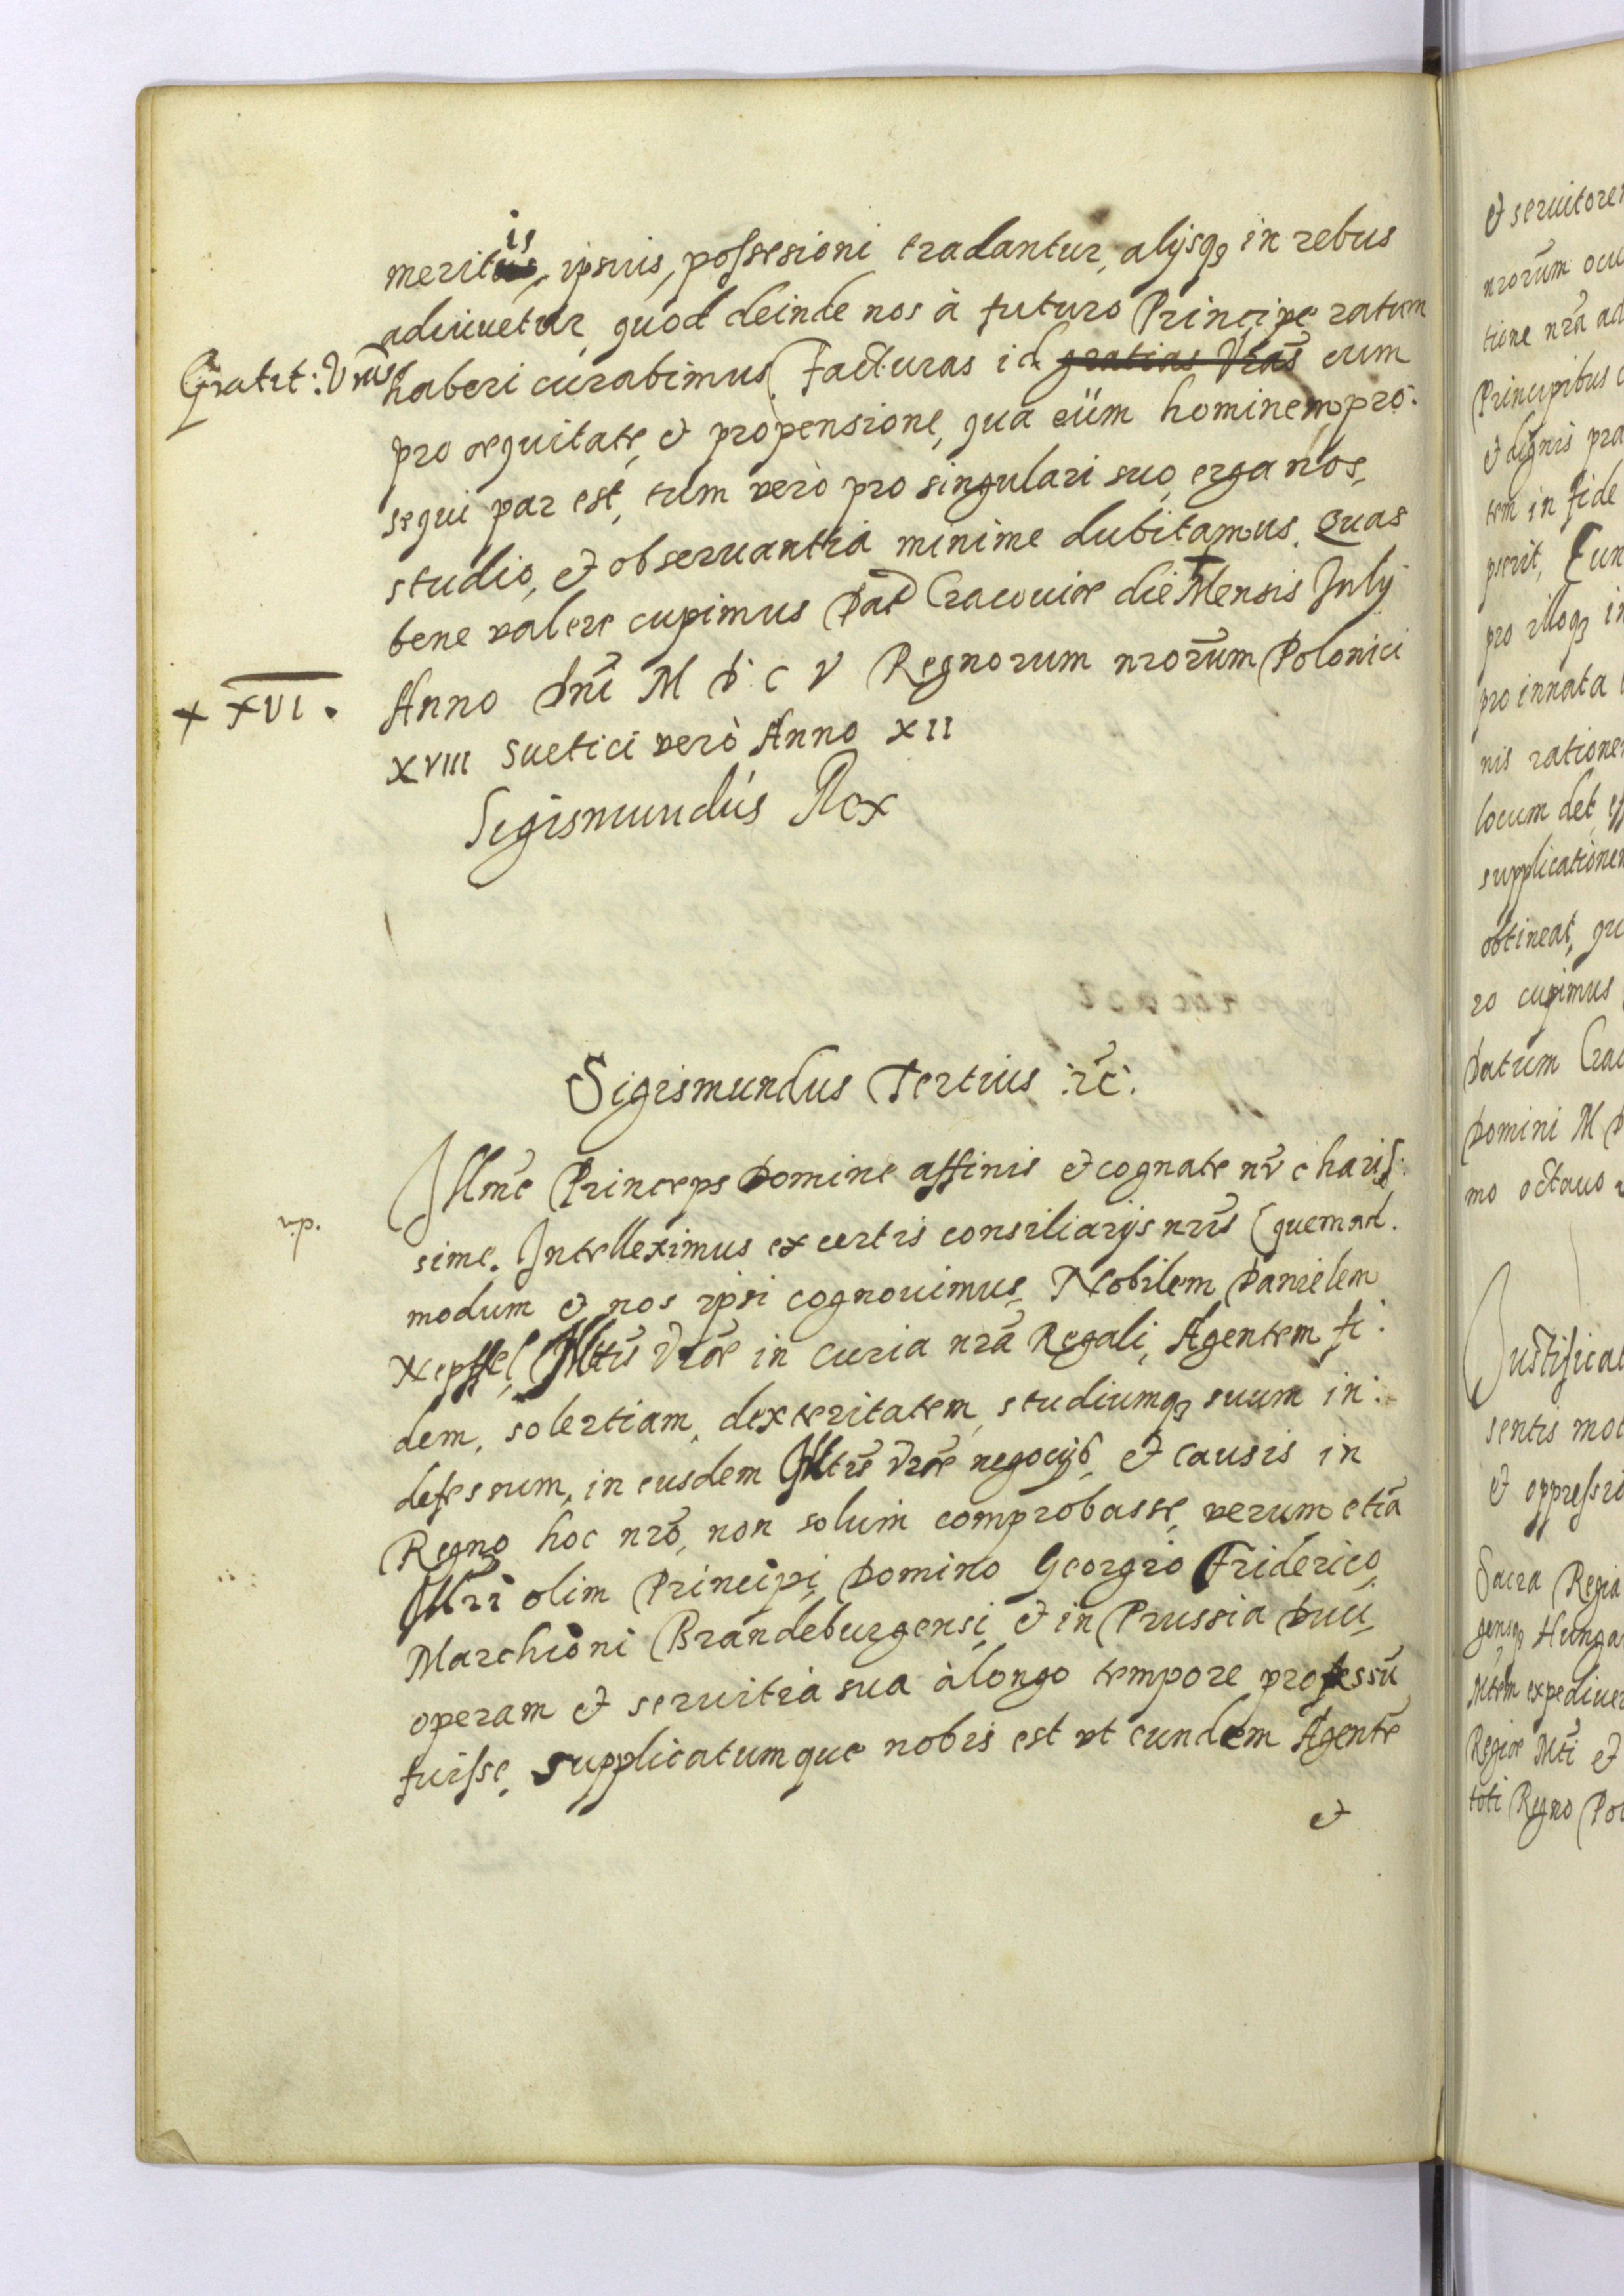 is
meritis, ipsius, possesioni tradantur, alijsq3 in rebus
adiuuetur, quod deinde nos à futuro Principe ratum
Gratit: Vras haberi curabimus. Facturas id gratias Vrãs cum
pro æquitate, et propensione, qua eüm hominem, pro:
sequi par est, tum verò pro singulari suo, erga nos,
studio, et obseruantia minime dubitamus. Quas
bene valere cupimus Dat Cracouiæ die + Mensis July
Anno Dnĩ M D. C V Regnorum nrorũm Polonici
+ XVI.
XVIII Suetici verò Anno XII
Sigismundús Rex
Sigismundus Tertius :rc̃:
Illmẽ Princeps Domine affinis et cognate nr̃ charis:
np.
sime. Intelleximus ex certis consiliarijs nrĩs (quemad.
modum et nos ipsi cognouimus, Nobilem Danielem
Nepffel, Illtĩs Vrãe in curia nrã Regali, Agentem fi:
dem, solertiam, dexteritatem, studiumq3 suum in:
defessum, in eiusdem Illtĩs Vrãe negocijs, et causis in
Regno hoc nrõ, non solum comprobasse, verum etiã
Illri olim Principi, Domino Georgio Friderico,
Marchioni Brandeburgensi, et in Prussia Duci,
operam et seruitia sua à longo tempore professũ
fuisse, supplicatumque nobis est vt eundem Agentẽ
et
et seruitore
nrorũm
tione nrã ad
Principibus
et dignis pra
tem in fide
pserit,
pro illoq3 in
pro innata
nis ratione
locum det,
supplicatione
obtineat,
ro cupimus
Datum Cra
Domini M D
mo octauo
Justifica
sentis mo
et oppressi
Sacra Regia
gensq3 Hunga
Mtẽm expediue
Regiæ Mtĩ et
toti Regno Po